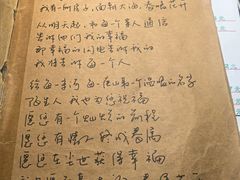 我有一所房子，面朝大海，春暖花开
从明天起，和每一个亲人通信
告诉他们我的幸福
那幸福的闪电告诉我的
我将告诉每一个人
给每一条河每一座山取一个温暖的名字
陌生人，我也为你祝福
愿你有一个灿烂的前程
愿你有情人终成眷属
愿你在尘世获得幸福